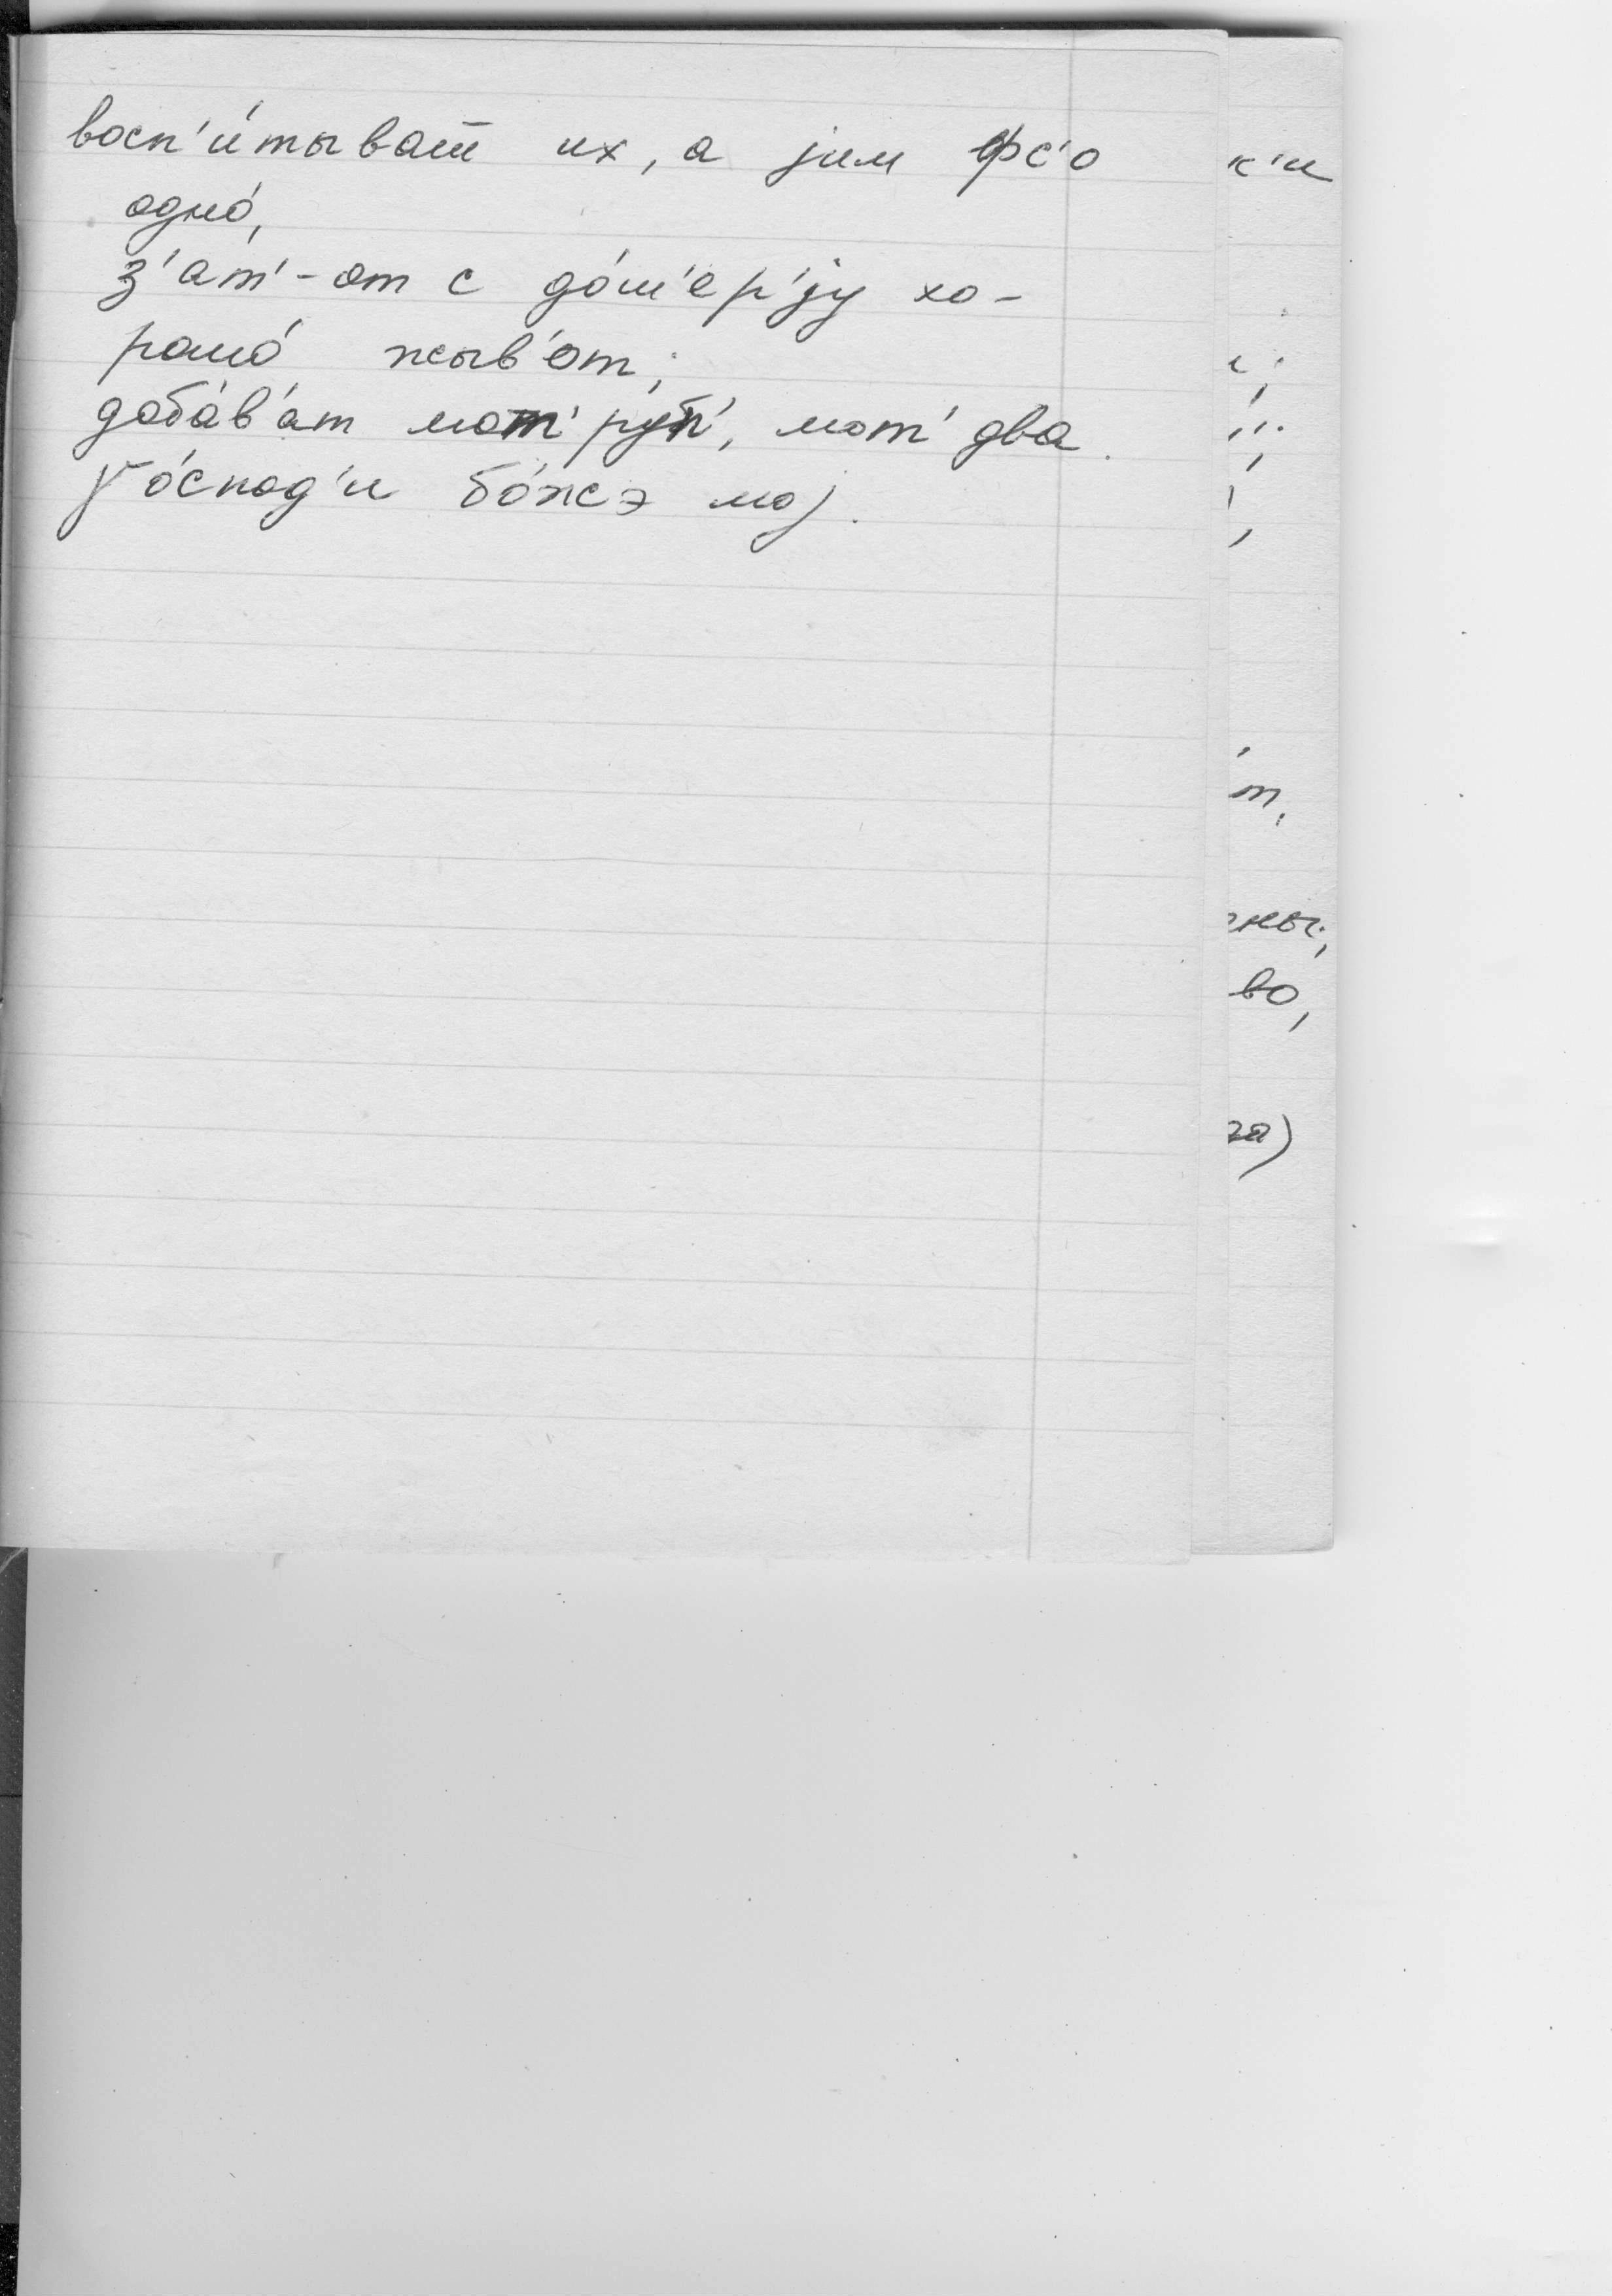 восп'и́тыват̅ их, а јим фс'о
одно́,
з'а́т'-от с до́ш'ер'јy хо-
рашо́ жыв'о́т;
доба́в'ат мот' ру́п', мот' два.
γо́спод'и бо́жэ мој.
к'и
т,
ны;
во,
за)